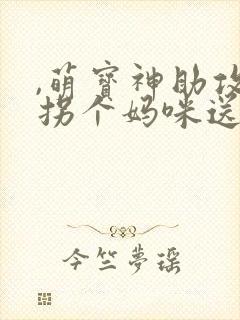 ,萌寶神助攻
拐个妈咪送
今竺夢瑶